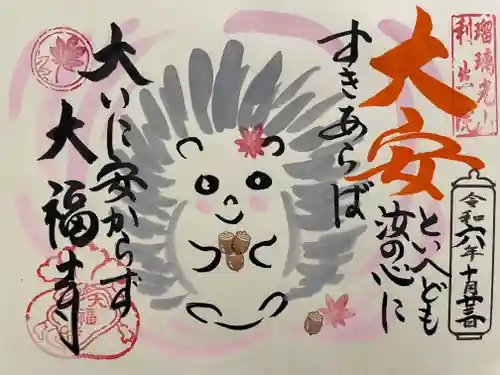 瑠璃光山
利生院
大安
といへども
汝の心に
すきあらば
大いに安からず
大福寺
令和六年十月廿三日
大福